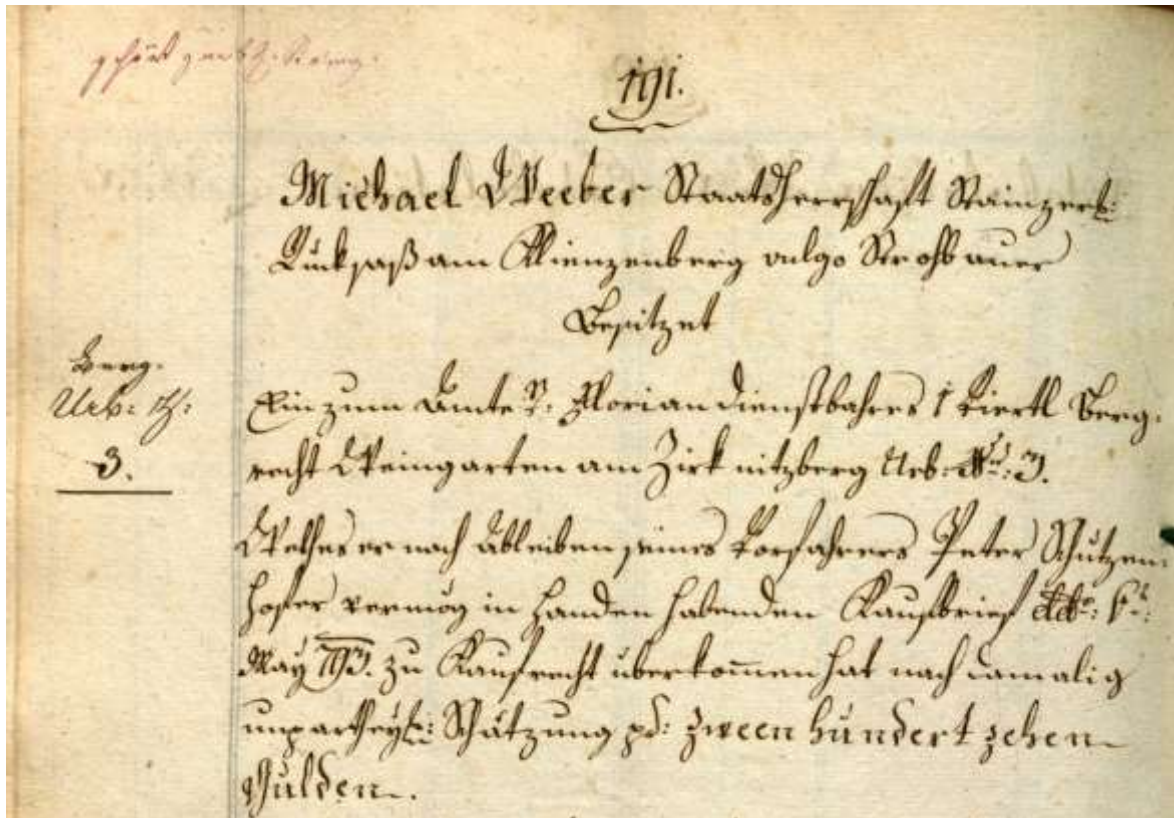 gehört zur
191.
Michael Weeber Staatsherrschaft Stainzerl:
Rucksaß am Kienzenberg vulgo Strohbauer
Besitzet
Berg.
Urb: N:
3.
Ein zum Amte St: Florian dienstbahres 1 Viertl Berg-
recht Weingarten am Zirknitzberg Urb: Nr: 3.
Welches er nach Ableiben seines Vorfahrers Peter Schutzen-
hofer vermög in Handen habenden Kaufbrief ddto:
May 793. zu Kaufrecht überkom̄en hat nach damalig
unpartheyl: Schätzung pd: zween hundert zehen
Gulden.